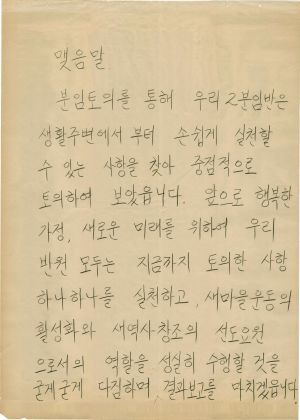 맺음말
분임토의를 통해 우리 2분임반은
생활주변에서 부터 손쉽게 실천할
수 있는 사항을 찾아 중점적으로
토의하여 보았읍니다. 앞으로 행복한
가정, 새로운 미래를 위하여 우리
반원 모두는 지금까지 토의한 사항
하나하나를 실천하고, 새마을운동의
활성화와 새역사창조의 선도요원
으로서의 역할을 성실히 수행할 것을
굳게굳게 다짐하며, 결과보고를 마치겠읍니다